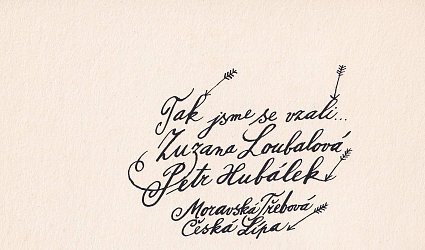 Tak jsme se vzali...
Zuzana Loubalová
Petr Hubálek
Moravská Třebová
Česká Lípa